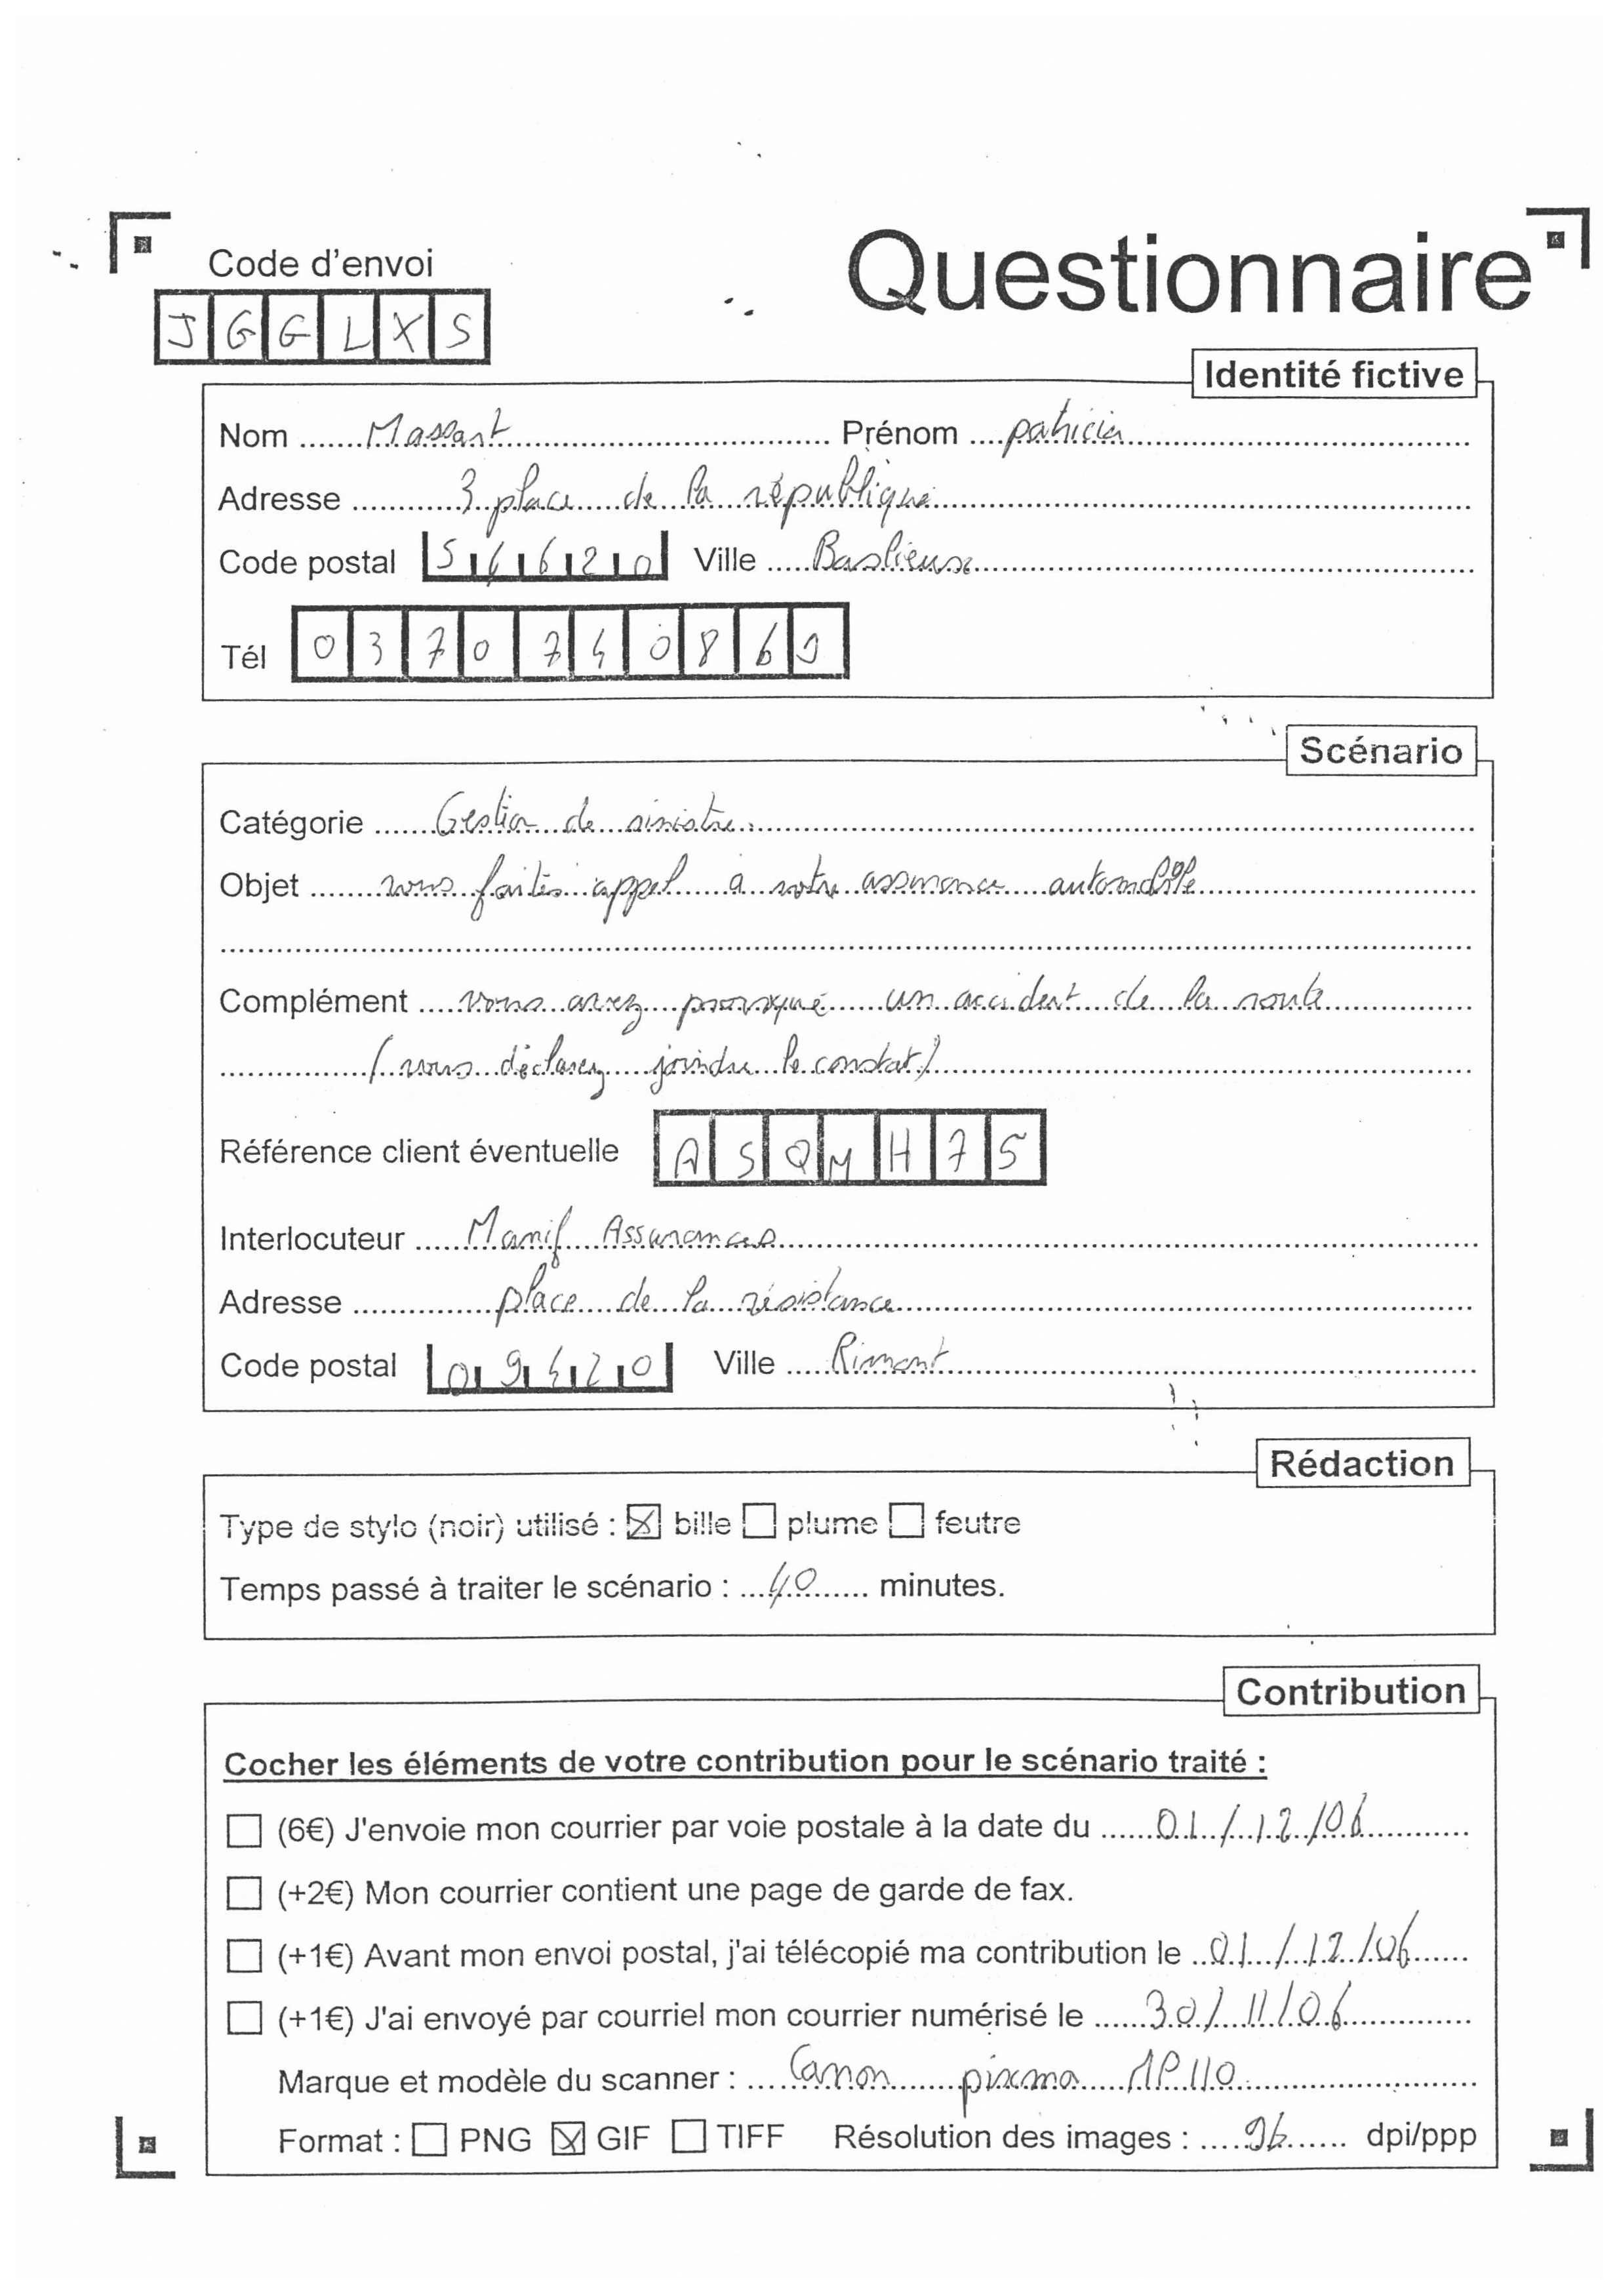 Code d'envoi
Questionnaire
J G G L X S
Identité fictive
Nom Massant Prénom patricia
Adresse 3 place de la république
Code postal 5 6 6 2 0 Ville Baslieuse
Tél 0 3 7 0 7 4 0 8 6
Scénario
Catégorie Gestion de sinistre.
Objet vous faites appel a votre assurance automobile
Complément vous avez provoqué un accident de la route
(vous déclarez joindre le constat)
Référence client éventuelle A S Q M H 7 5
Interlocuteur Manif Assurances
Adresse place de la résistance
Code postal 0 9 4 2 0 Ville Rimont
Rédaction
Type de stylo (noir) utilisé : ☒ bille ☐ plume ☐ feutre
Temps passé à traiter le scénario : 40 minutes.
Contribution
Cocher les éléments de votre contribution pour le scénario traité :
☐ (6€) J'envoie mon courrier par voie postale à la date du 01/12/06
☐ (+2€) Mon courrier contient une page de garde de fax.
☐ (+1€) Avant mon envoi postal, j'ai télécopié ma contribution le 01/12/06
☐ (+1€) J'ai envoyé par courriel mon courrier numérisé le 30/11/06
Marque et modèle du scanner : Canon pixma MP110
Format : ☐ PNG ☒ GIF ☐ TIFF Résolution des images : 96 dpi/ppp